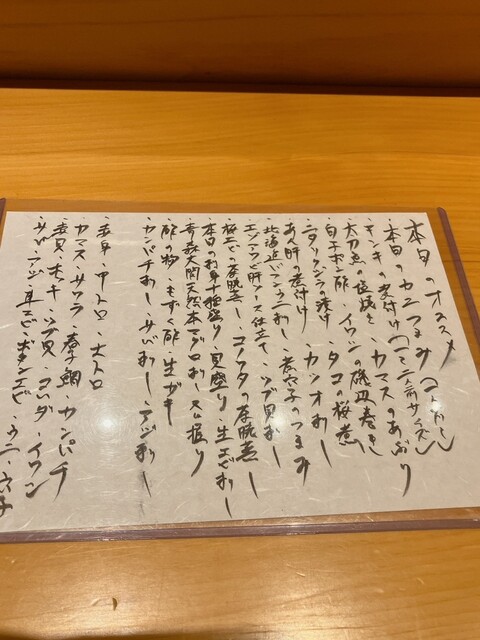 本日のオススメ
・本日のカニつまみ
・キンキの煮付け
・太刀魚の塩焼き ・カマスのあぶり
・白子ポン酢 ・イワシの磯辺巻き
・ニタリクジラの漬け ・タコの桜煮
・あん肝の煮付け ・カツオ刺し
・北海道バフンウニ刺し ・煮穴子のつまみ
・エゾアワビ肝ソース仕立て ・ツブ貝刺し
・桜エビの茶碗蒸し ・コノワタの茶碗蒸し
・本日のお刺身十種盛り ・貝盛り ・生エビ刺し
・青森大間天然本マグロ刺し
・酢の物 ・もずく酢 ・生ガキ
・カンパチ刺し ・サバ刺し ・アジ刺し
・赤身 ・中トロ ・大トロ
・カマス ・サワラ ・春子鯛 ・カンパチ
・赤貝 ・ホッキ ・ツブ貝 ・コハダ ・イワシ
・サバ ・アジ ・車エビ ・ボタンエビ ・ウニ ・穴子